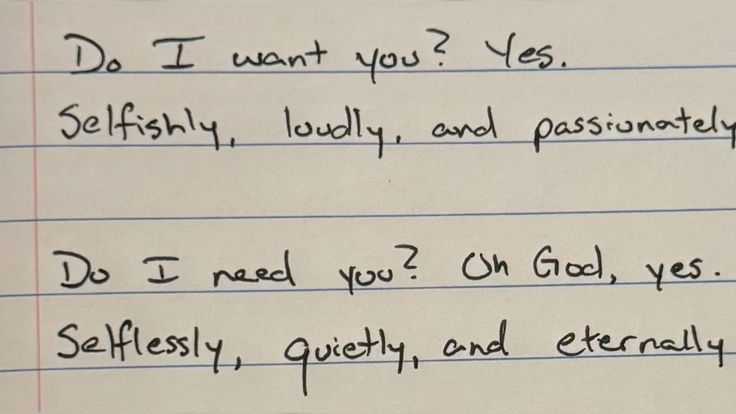 Do I want you? Yes.
Selfishly, loudly, and passionately
Do I need you? Oh God, yes.
Selflessly, quietly, and eternally